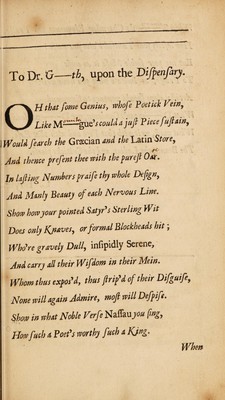 To Dr. G—th, upon the Dispensary.
OH that some Genius, whose Poetick Vein,
Like M—gue's could a just Piece sustain,
Would search the Græcian and the Latin Store,
And thence present thee with the purest Oar.
In lasting Numbers praise thy whole Design,
And Manly Beauty of each Nervous Line.
Show how your pointed Satyr's Sterling Wit
Does only Knaves, or formal Blockheads hit;
Who're gravely Dull, insipidly Serene,
And carry all their Wisdom in their Mein.
Whom thus expos'd, thus strip'd of their Disguise,
None will again Admire, most will Despise.
Show in what Noble Verse Nassau you sing,
How such a Poet's worthy such a King.
When